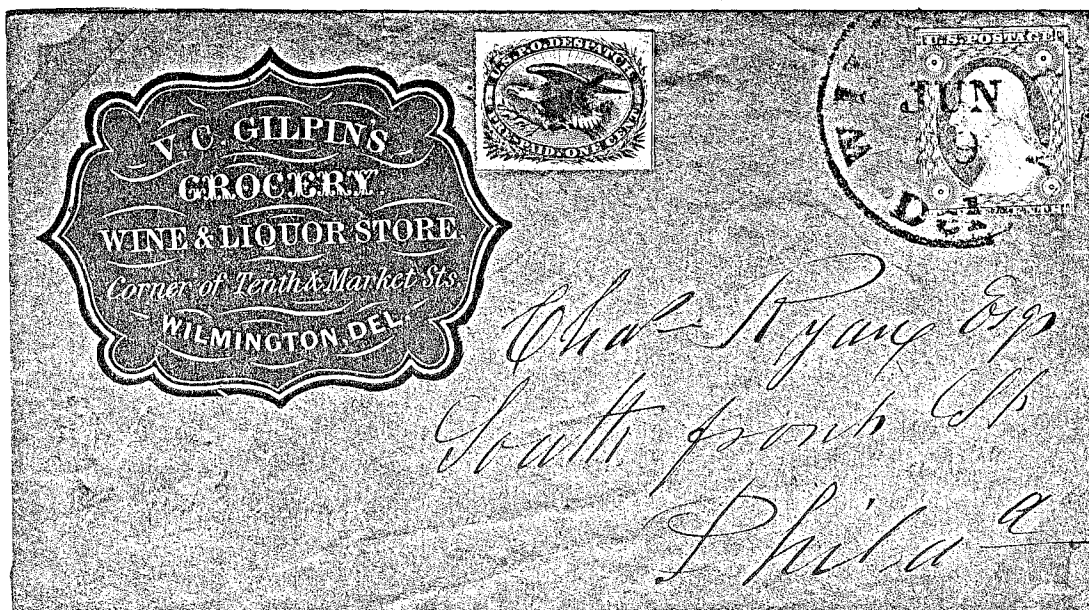 V. C. GILPIN'S
GROCERY
WINE & LIQUOR STORE.
Corner of Tenth & Market Sts
WILMINGTON, DEL.
U.S.P.O. DESPATCH
PRE-PAID ONE CENT
U.S. POSTAGE
JUN
9
DEL
Chas Ryan Esqr
South front St
Philada